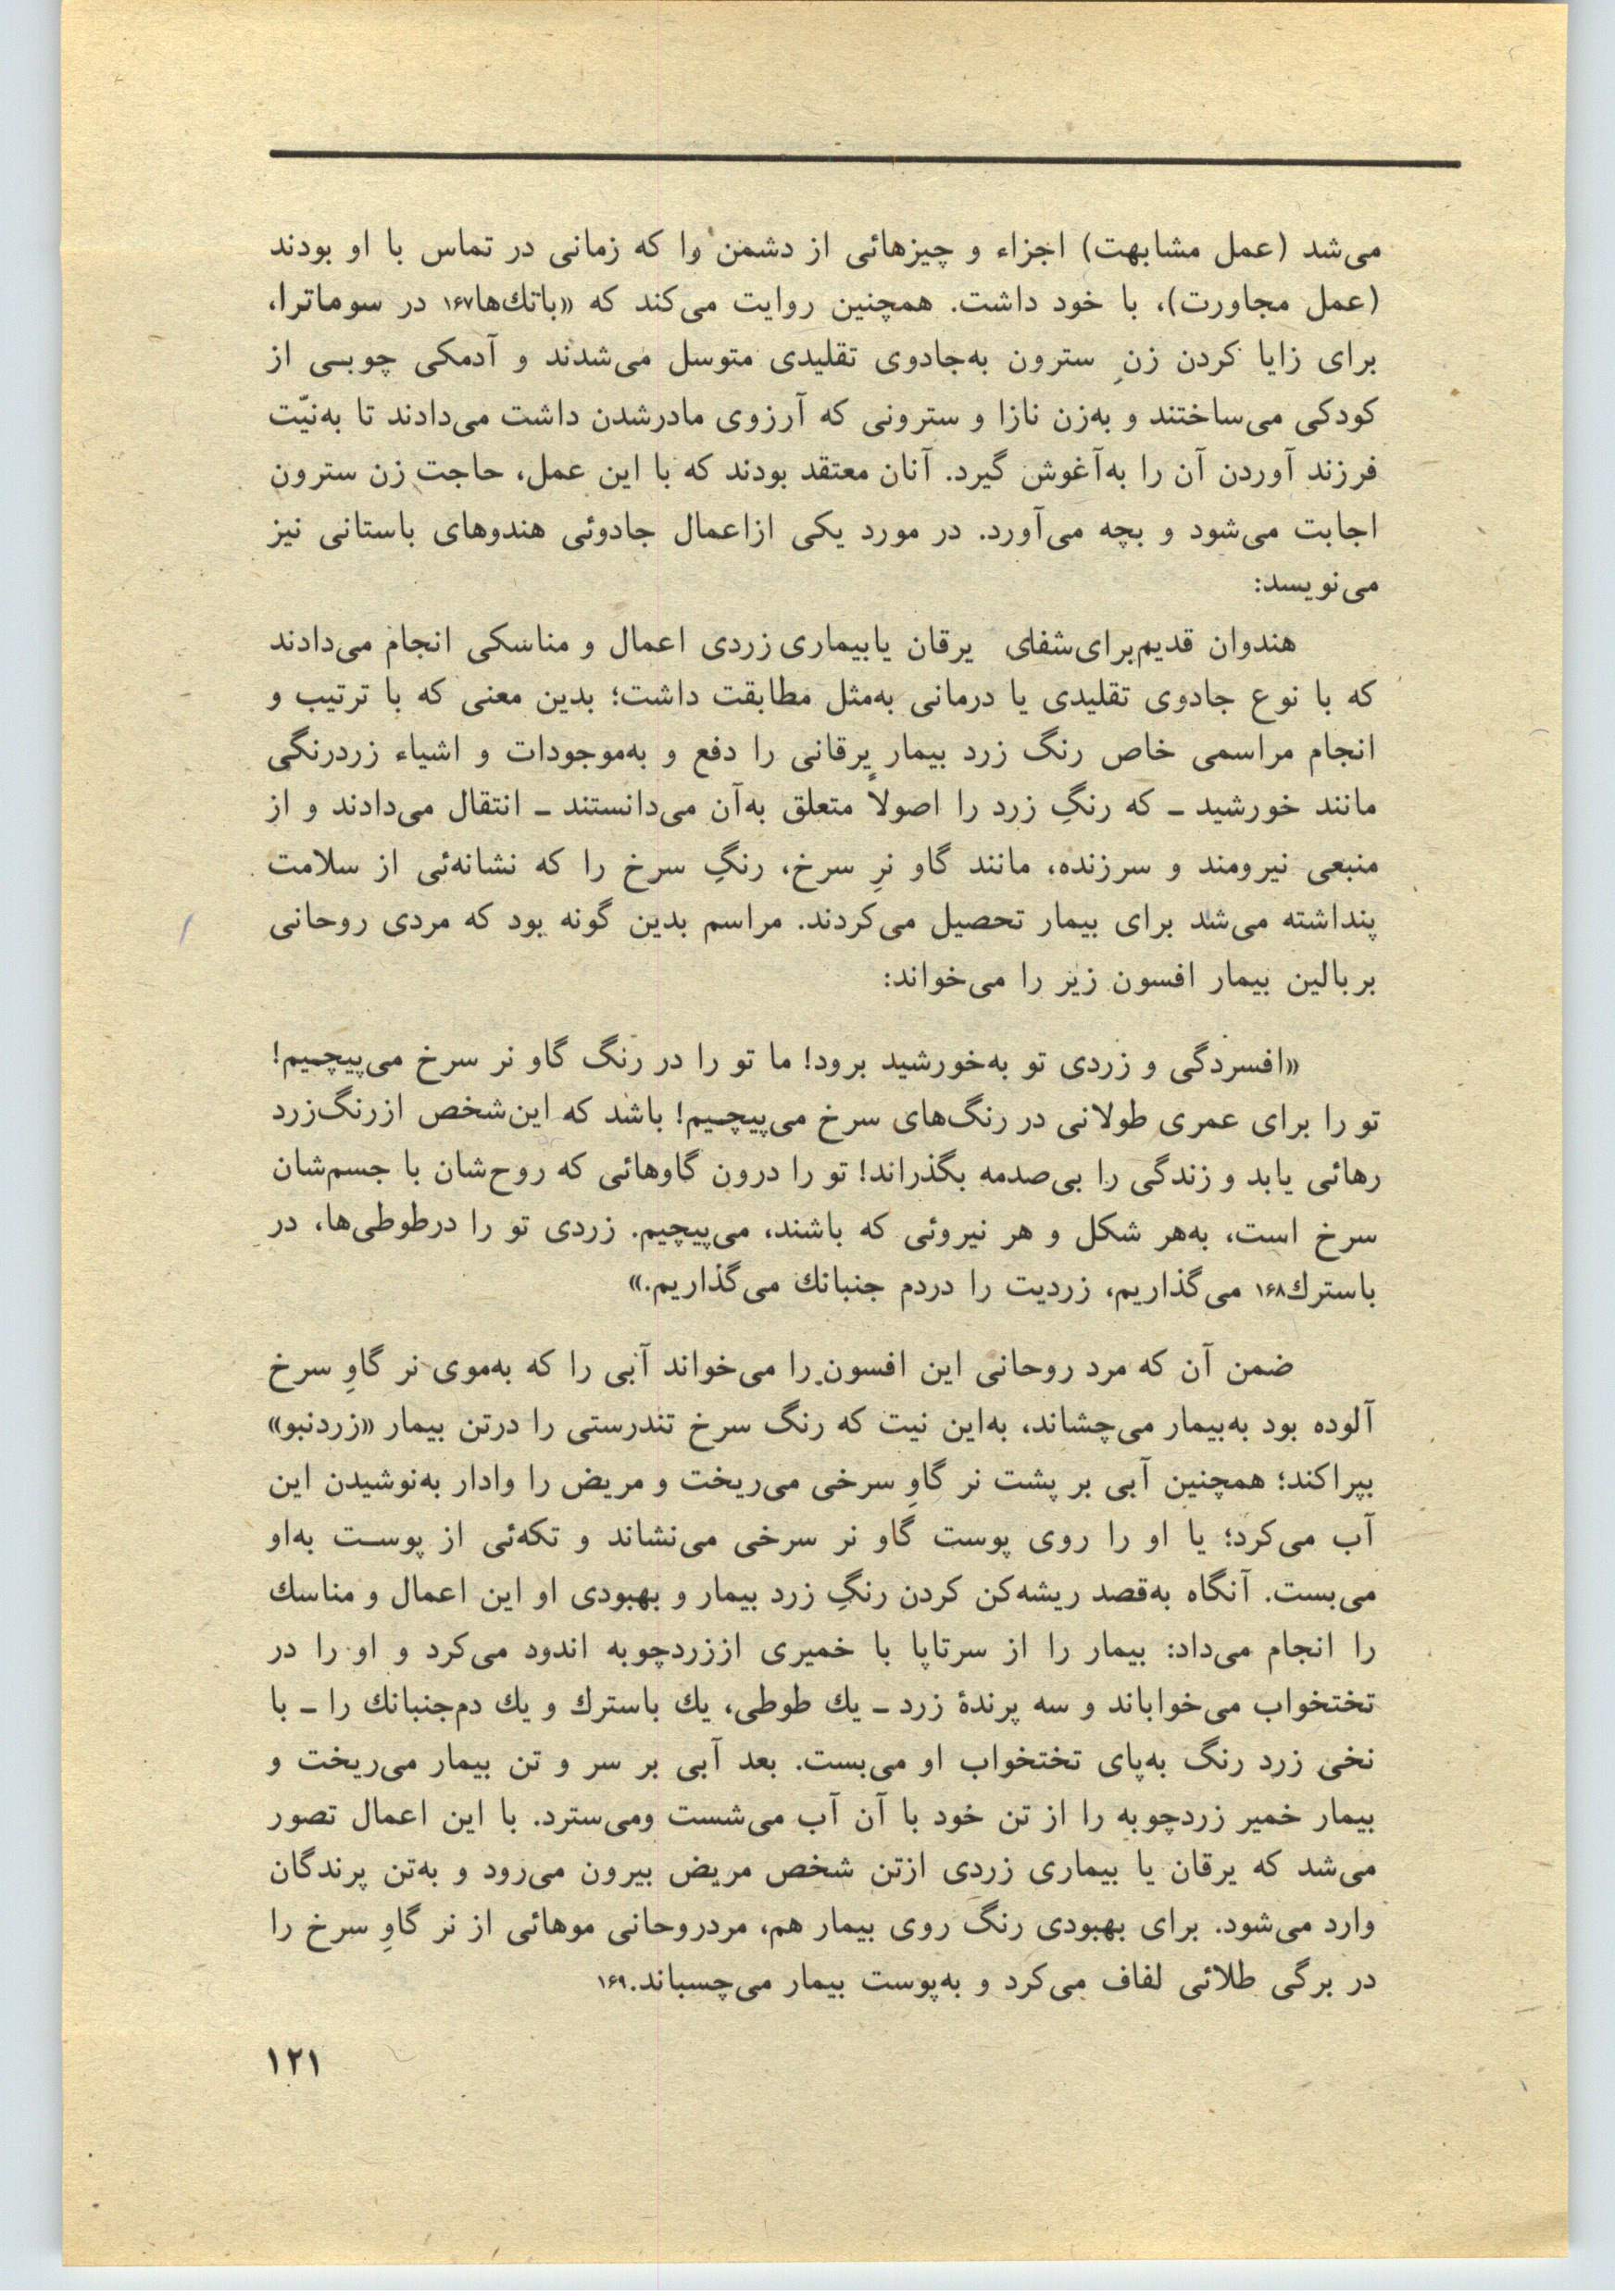 می‌شد (عمل مشابهت) اجزاء و چیزهائی از دشمن را که زمانی در تماس با او بودند
(عمل مجاورت)، با خود داشت. همچنین روایت می‌کند که «باتك‌ها۱۶۷ در سوماترا،
برای زایا کردن زنِ سترون به‌جادوی تقلیدی متوسل می‌شدند و آدمکی چوبی از
کودکی می‌ساختند و به‌زن نازا و سترونی که آرزوی مادرشدن داشت می‌دادند تا به‌نیّت
فرزند آوردن آن را به‌آغوش گیرد. آنان معتقد بودند که با این عمل، حاجت زن سترون
اجابت می‌شود و بچه می‌آورد. در مورد یکی ازاعمال جادوئی هندوهای باستانی نیز
می‌نویسد:
هندوان قدیم‌برای‌شفای یرقان یابیماری زردی اعمال و مناسکی انجام می‌دادند
که با نوع جادوی تقلیدی یا درمانی به‌مثل مطابقت داشت؛ بدین معنی که با ترتیب و
انجام مراسمی خاص رنگ زرد بیمار یرقانی را دفع و به‌موجودات و اشیاء زردرنگی
مانند خورشید ـ که رنگِ زرد را اصولاً متعلق به‌آن می‌دانستند ـ انتقال می‌دادند و از
منبعی نیرومند و سرزنده، مانند گاو نرِ سرخ، رنگِ سرخ را که نشانه‌ئی از سلامت
پنداشته می‌شد برای بیمار تحصیل می‌کردند. مراسم بدین گونه بود که مردی روحانی
بربالین بیمار افسون زیر را می‌خواند:
«افسردگی و زردی تو به‌خورشید برود! ما تو را در رنگ گاو نر سرخ می‌پیچیم!
تو را برای عمری طولانی در رنگ‌های سرخ می‌پیچیم! باشد که این‌شخص ازرنگ‌زرد
رهائی یابد و زندگی را بی‌صدمه بگذراند! تو را درون گاوهائی که روح‌شان با جسم‌شان
سرخ است، به‌هر شکل و هر نیروئی که باشند، می‌پیچیم. زردی تو را درطوطی‌ها، در
باسترك۱۶۸ می‌گذاریم، زردیت را دردم جنبانك می‌گذاریم.»
ضمن آن که مرد روحانی این افسون را می‌خواند آبی را که به‌موی نر گاوِ سرخ
آلوده بود به‌بیمار می‌چشاند، به‌این نیت که رنگ سرخ تندرستی را درتن بیمار «زردنبو»
بپراکند؛ همچنین آبی بر پشت نر گاوِ سرخی می‌ریخت و مریض را وادار به‌نوشیدن این
آب می‌کرد؛ یا او را روی پوست گاو نر سرخی می‌نشاند و تکه‌ئی از پوست به‌او
می‌بست. آنگاه به‌قصد ریشه‌کن کردن رنگِ زرد بیمار و بهبودی او این اعمال و مناسك
را انجام می‌داد: بیمار را از سرتاپا با خمیری اززردچوبه اندود می‌کرد و او را در
تختخواب می‌خواباند و سه پرندهٔ زرد ـ یك طوطی، یك باسترك و یك دم‌جنبانك را ـ با
نخی زرد رنگ به‌پای تختخواب او می‌بست. بعد آبی بر سر و تن بیمار می‌ریخت و
بیمار خمیر زردچوبه را از تن خود با آن آب می‌شست ومی‌سترد. با این اعمال تصور
می‌شد که یرقان یا بیماری زردی ازتن شخص مریض بیرون می‌رود و به‌تن پرندگان
وارد می‌شود. برای بهبودی رنگ روی بیمار هم، مردروحانی موهائی از نر گاوِ سرخ را
در برگی طلائی لفاف می‌کرد و به‌پوست بیمار می‌چسباند.۱۶۹
۱۲۱